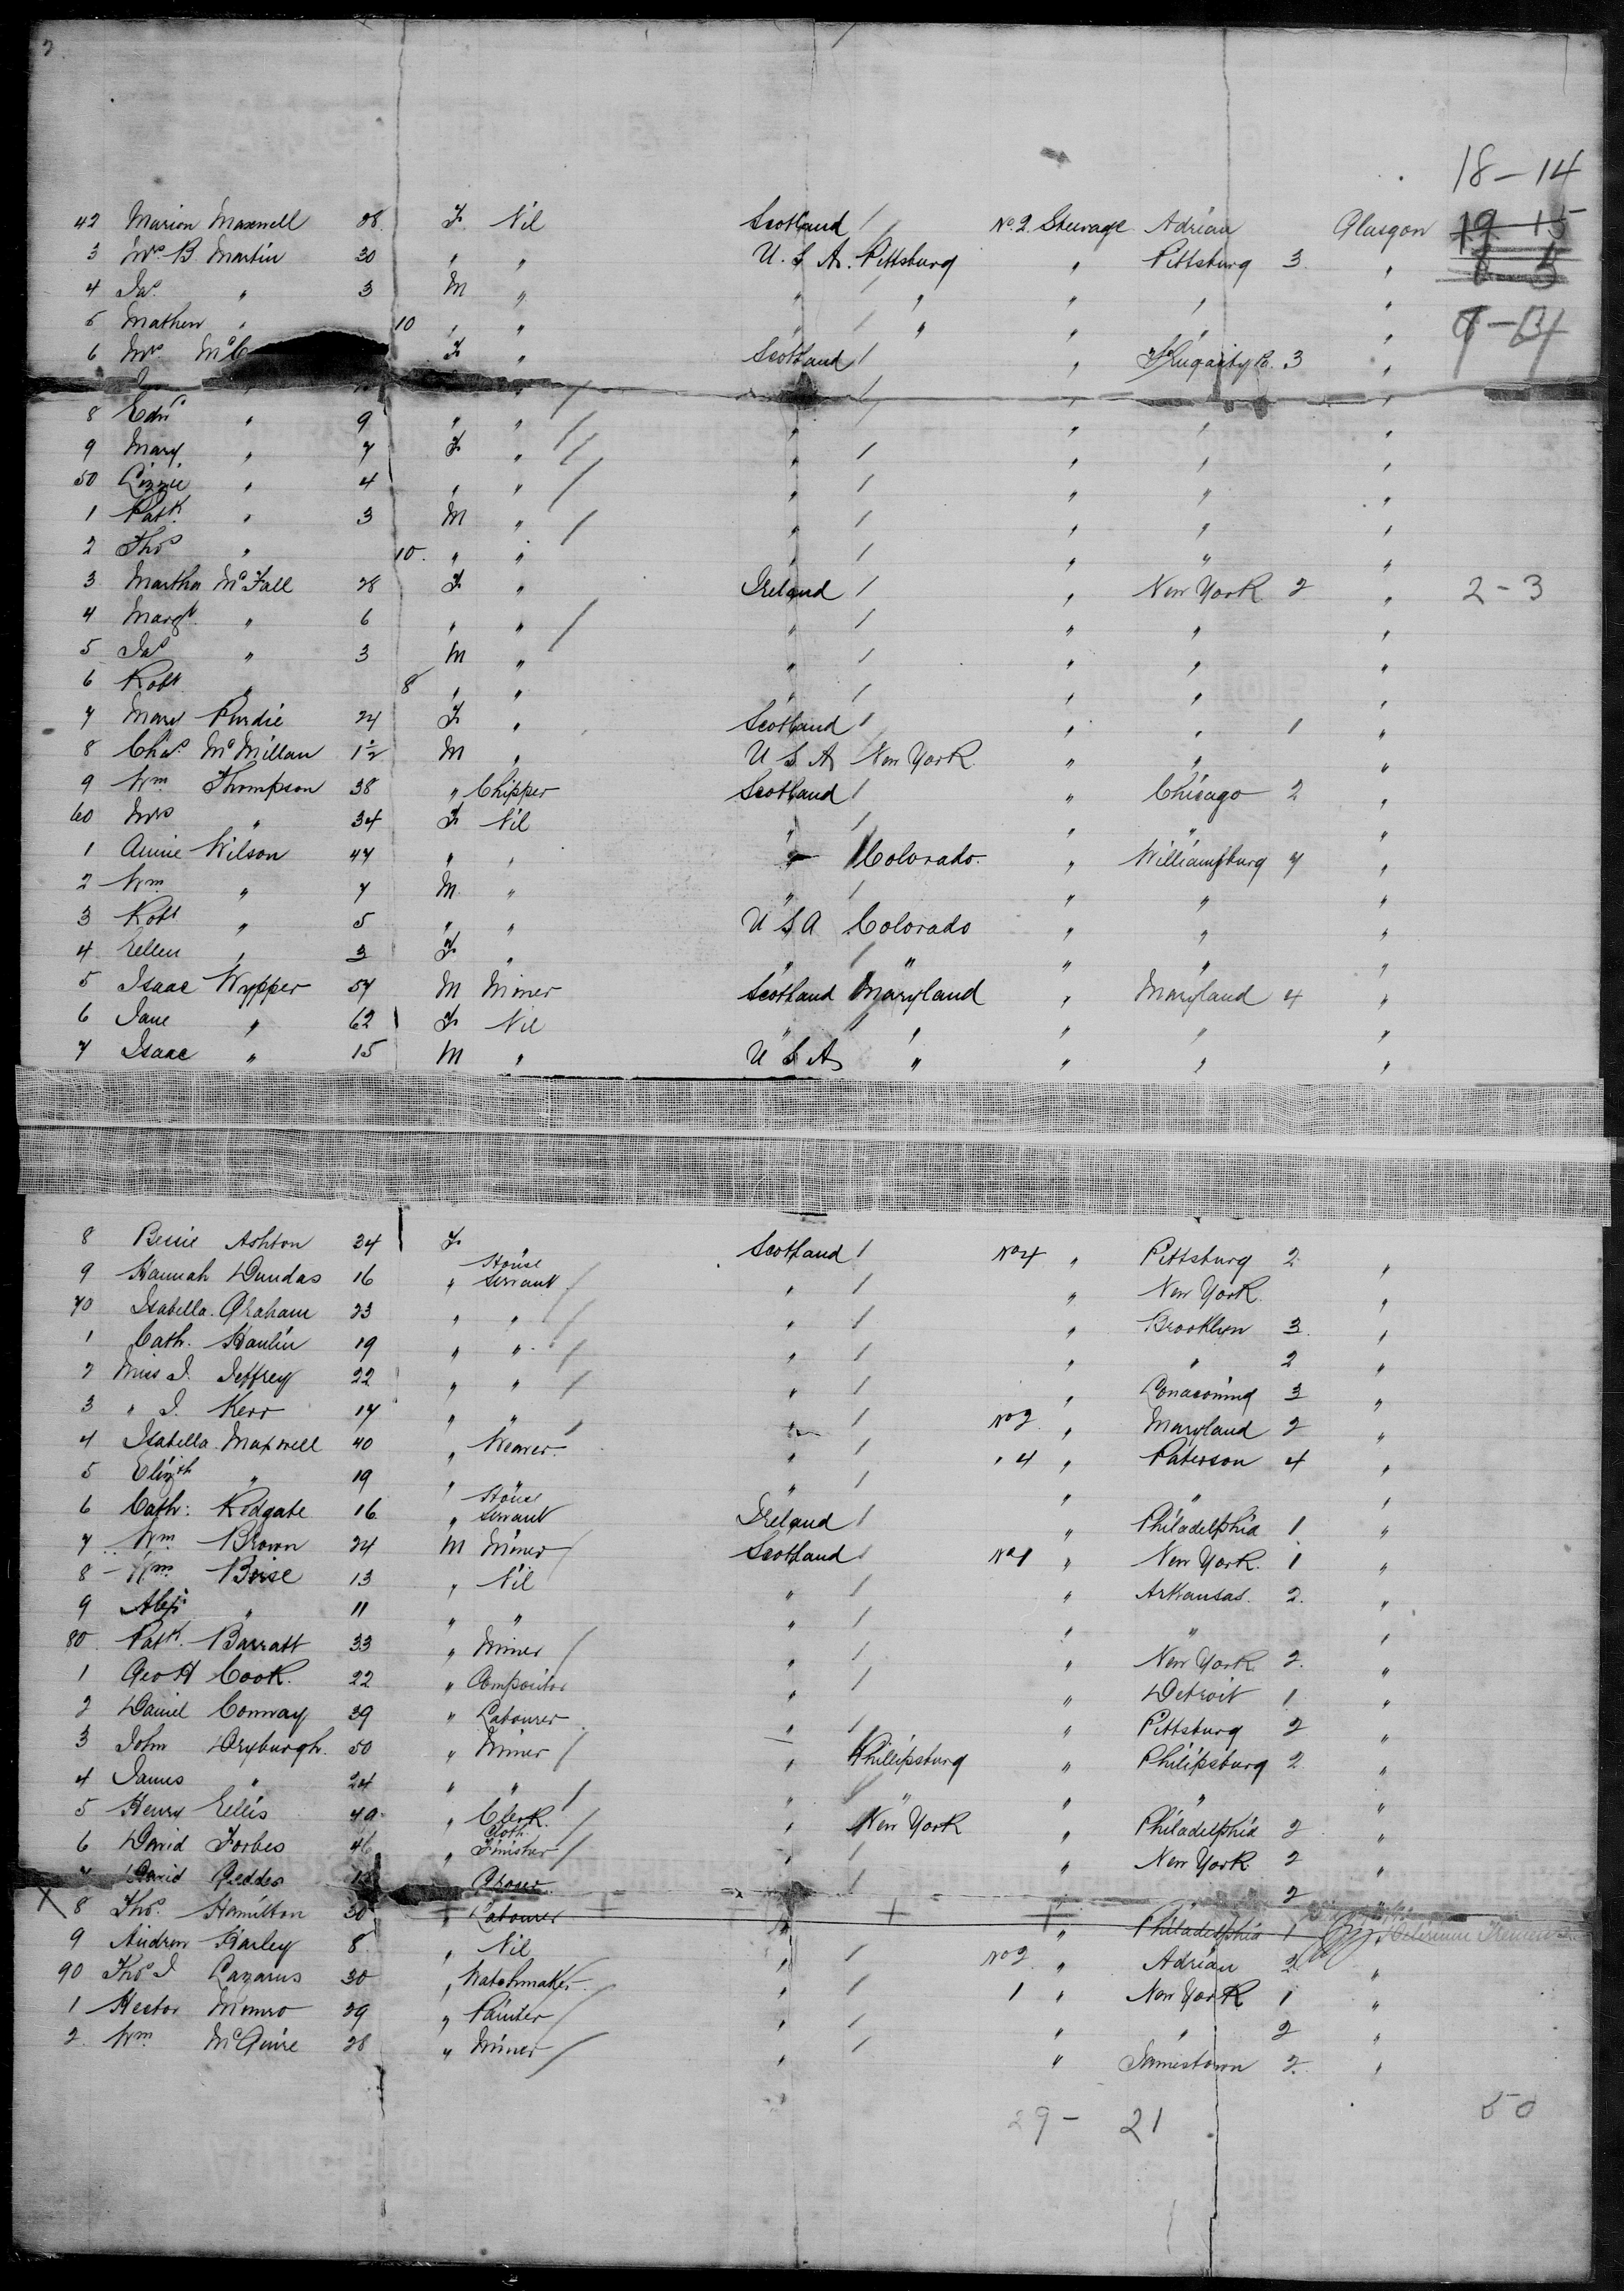 2
18-14
42 Marion Maxwell 28 F Nil Scotland / No. 2 Steerage Adrian Glasgow 19 15
3 Mrs. B Martin 30 " " U.S.A. Pittsburg " Pittsburg 3 " 8 5
4 Jas. " 3 M " " " " " "
5 Mathew " 10 " " " " " " "
6 Mrs. McC F " Scotland / " 3 "
" " / / " " "
8 Edwd " 9 " " / " / " " "
9 Mary " 7 F " / " / " " "
50 Lizzie " 4 " " / " / " " "
1 Patk. " 3 M " / " / " " "
2 Thos " 10. " " " / " " "
3 Martha McFall 28 F " Ireland / " New York 2 " 2-3
4 Margt. " 6 " " / " / " " "
5 Jas " 3 M " " / " " "
6 Robt " 8 " " " / " " "
7 Mary Purdie 24 F " Scotland / " " 1 "
8 Chas. McMillan 1½ M " U S A New York " " "
9 Wm Thompson 38 " Chipper Scotland / " Chicago 2 "
60 Mrs " 34 F Nil " / " " "
1 Annie Wilson 47 " " " Colorado " Williamsburg 7 "
2 Wm. " 7 M " " / " " "
3 Robt " 5 " " U S A Colorado " " "
4 Ellen " 3 F " " / " " " "
5 Isaac Wypper 57 M Miner Scotland Maryland " Maryland 4 "
6 Jane " 62 F Nil " / " " " "
7 Isaac " 15 M " U S A " " " "
8 Bessie Ashton 34 F Scotland / No 4 " Pittsburg 2 "
9 Hannah Dundas 16 " House Servant / " / " New York "
70 Isabella Graham 23 " " / " / " Brooklyn 3. "
1 Cath. Hanlin 19 " " / " / " " 2 "
2 Miss J. Jeffrey 22 " " / " / " Lonaconing 3 "
3 " J. Kerr 17 " " / " / No 2 " Maryland 2 "
4 Isabella Maxwell 40 " Weaver " / " 4 " Paterson 4 "
5 Elizth " 19 " " / " " "
6 Cath: Redgate 16 " House Servant Ireland / " Philadelphia 1 "
7 Wm. Brown 24 M Miner / Scotland / No 1 " New York. 1 "
8 Wm. 13 " Nil " / " Arkansas. 2. "
9 Alexr " 11 " " " / " " "
80 Patk. Barratt 33 " Miner / " / " New York 2. "
1 Geo H Cook. 22 " Compositor " / " Detroit 1 "
2 Daniel Conway 39 " Labourer " / " Pittsburg 2 "
3 John Dryburgh. 50 " Miner / " Phillipsburg " Philipsburg 2 "
4 James " 24 " " / " / " " " "
5 Henry Ellis 40 " Clerk. / " New York " Philadelphia 2 "
6 David Forbes 46 " Cloth Finisher / " / " New York 2 "
7 David Geddes / " 2
X 8 Thos. Hamilton 30 " Labourer " " Philadelphia 1 Delirium Tremens
9 Andrew Harley 8 " Nil " / No 2 " Adrian 2 "
90 Thos J Lazarus 30 " Watchmaker " / 1 " New York 1 "
1 Hector Munro 29 " Painter / " / " " 2 "
2. Wm McGuire 28 " Miner / " / " Jamestown 2. "
29- 21 50